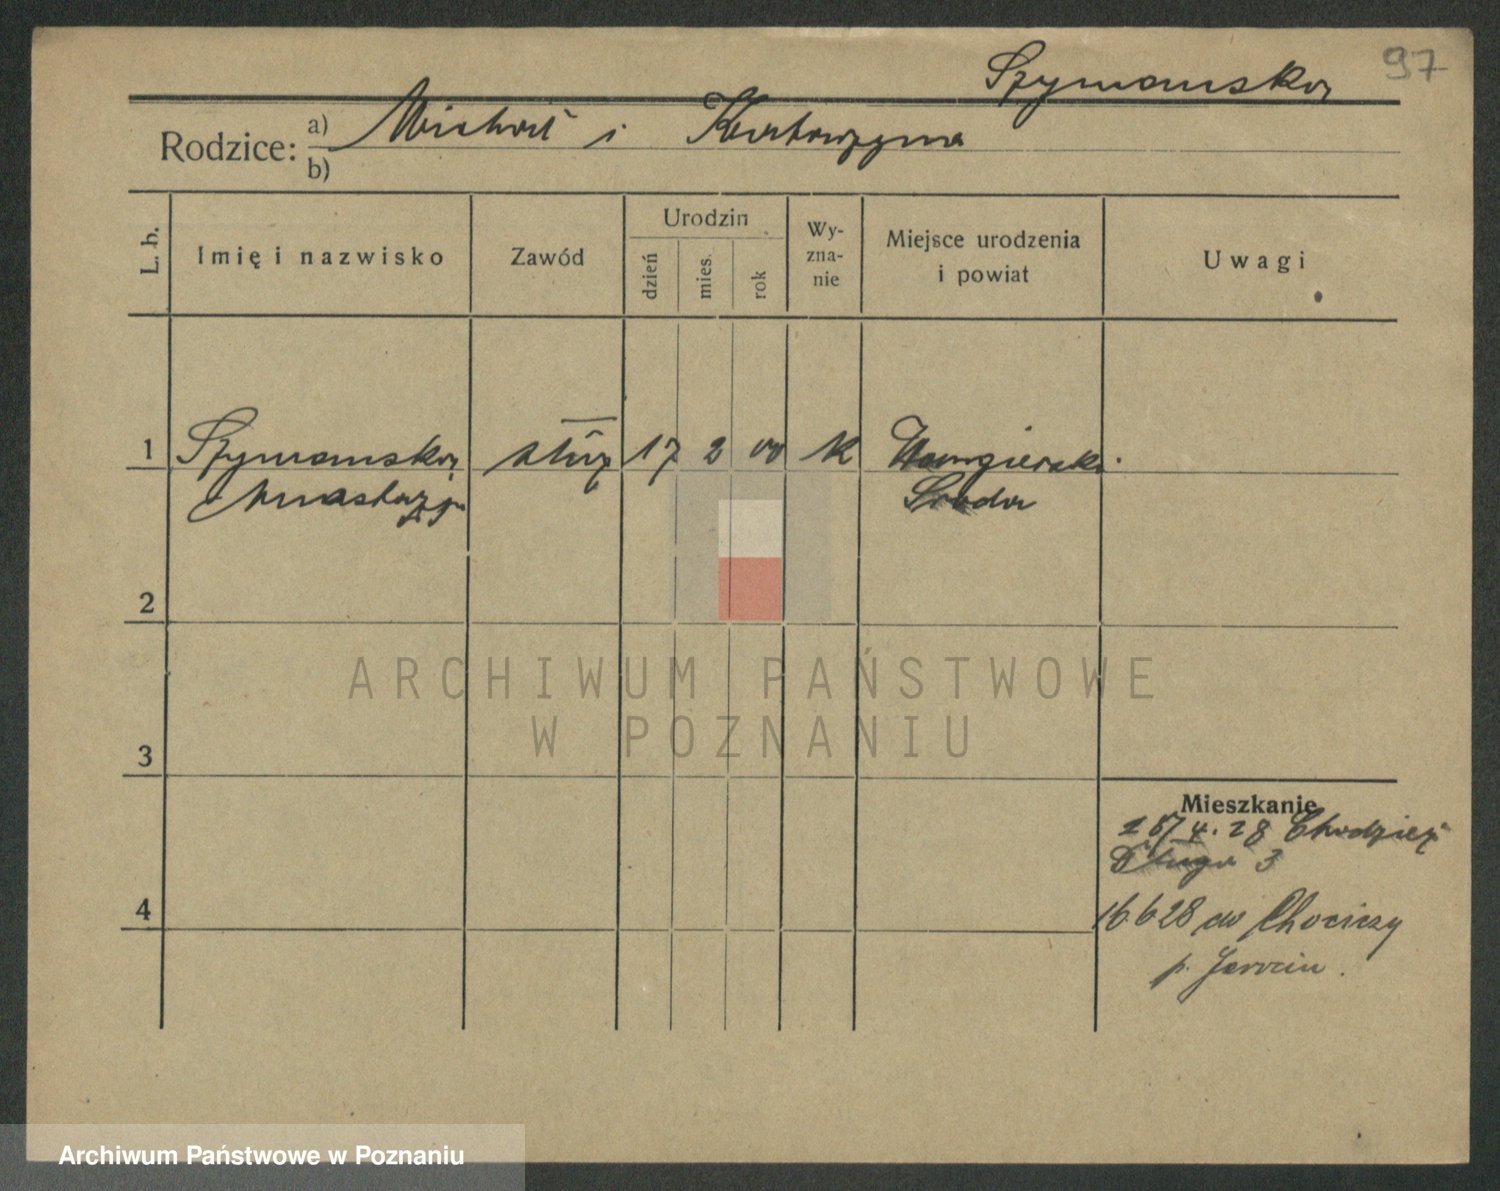 97
Szymańska
Rodzice: a) Michał i Katarzyna
b)
L. b.
Imię i nazwisko
Zawód
Urodzin
dzień
mies.
rok
Wy-
zna-
nie
Miejsce urodzenia
i powiat
Uwagi
1 Szymańska służ 17 2 00 K Węgierski
Anastazja Środa
2
ARCHIWUM PAŃSTWOWE
W POZNANIU
3
Mieszkanie
4.28 Chodzież
Długa 3
4
16.6 28 do Chociczy
p. Jarocin.
Archiwum Państwowe w Poznaniu